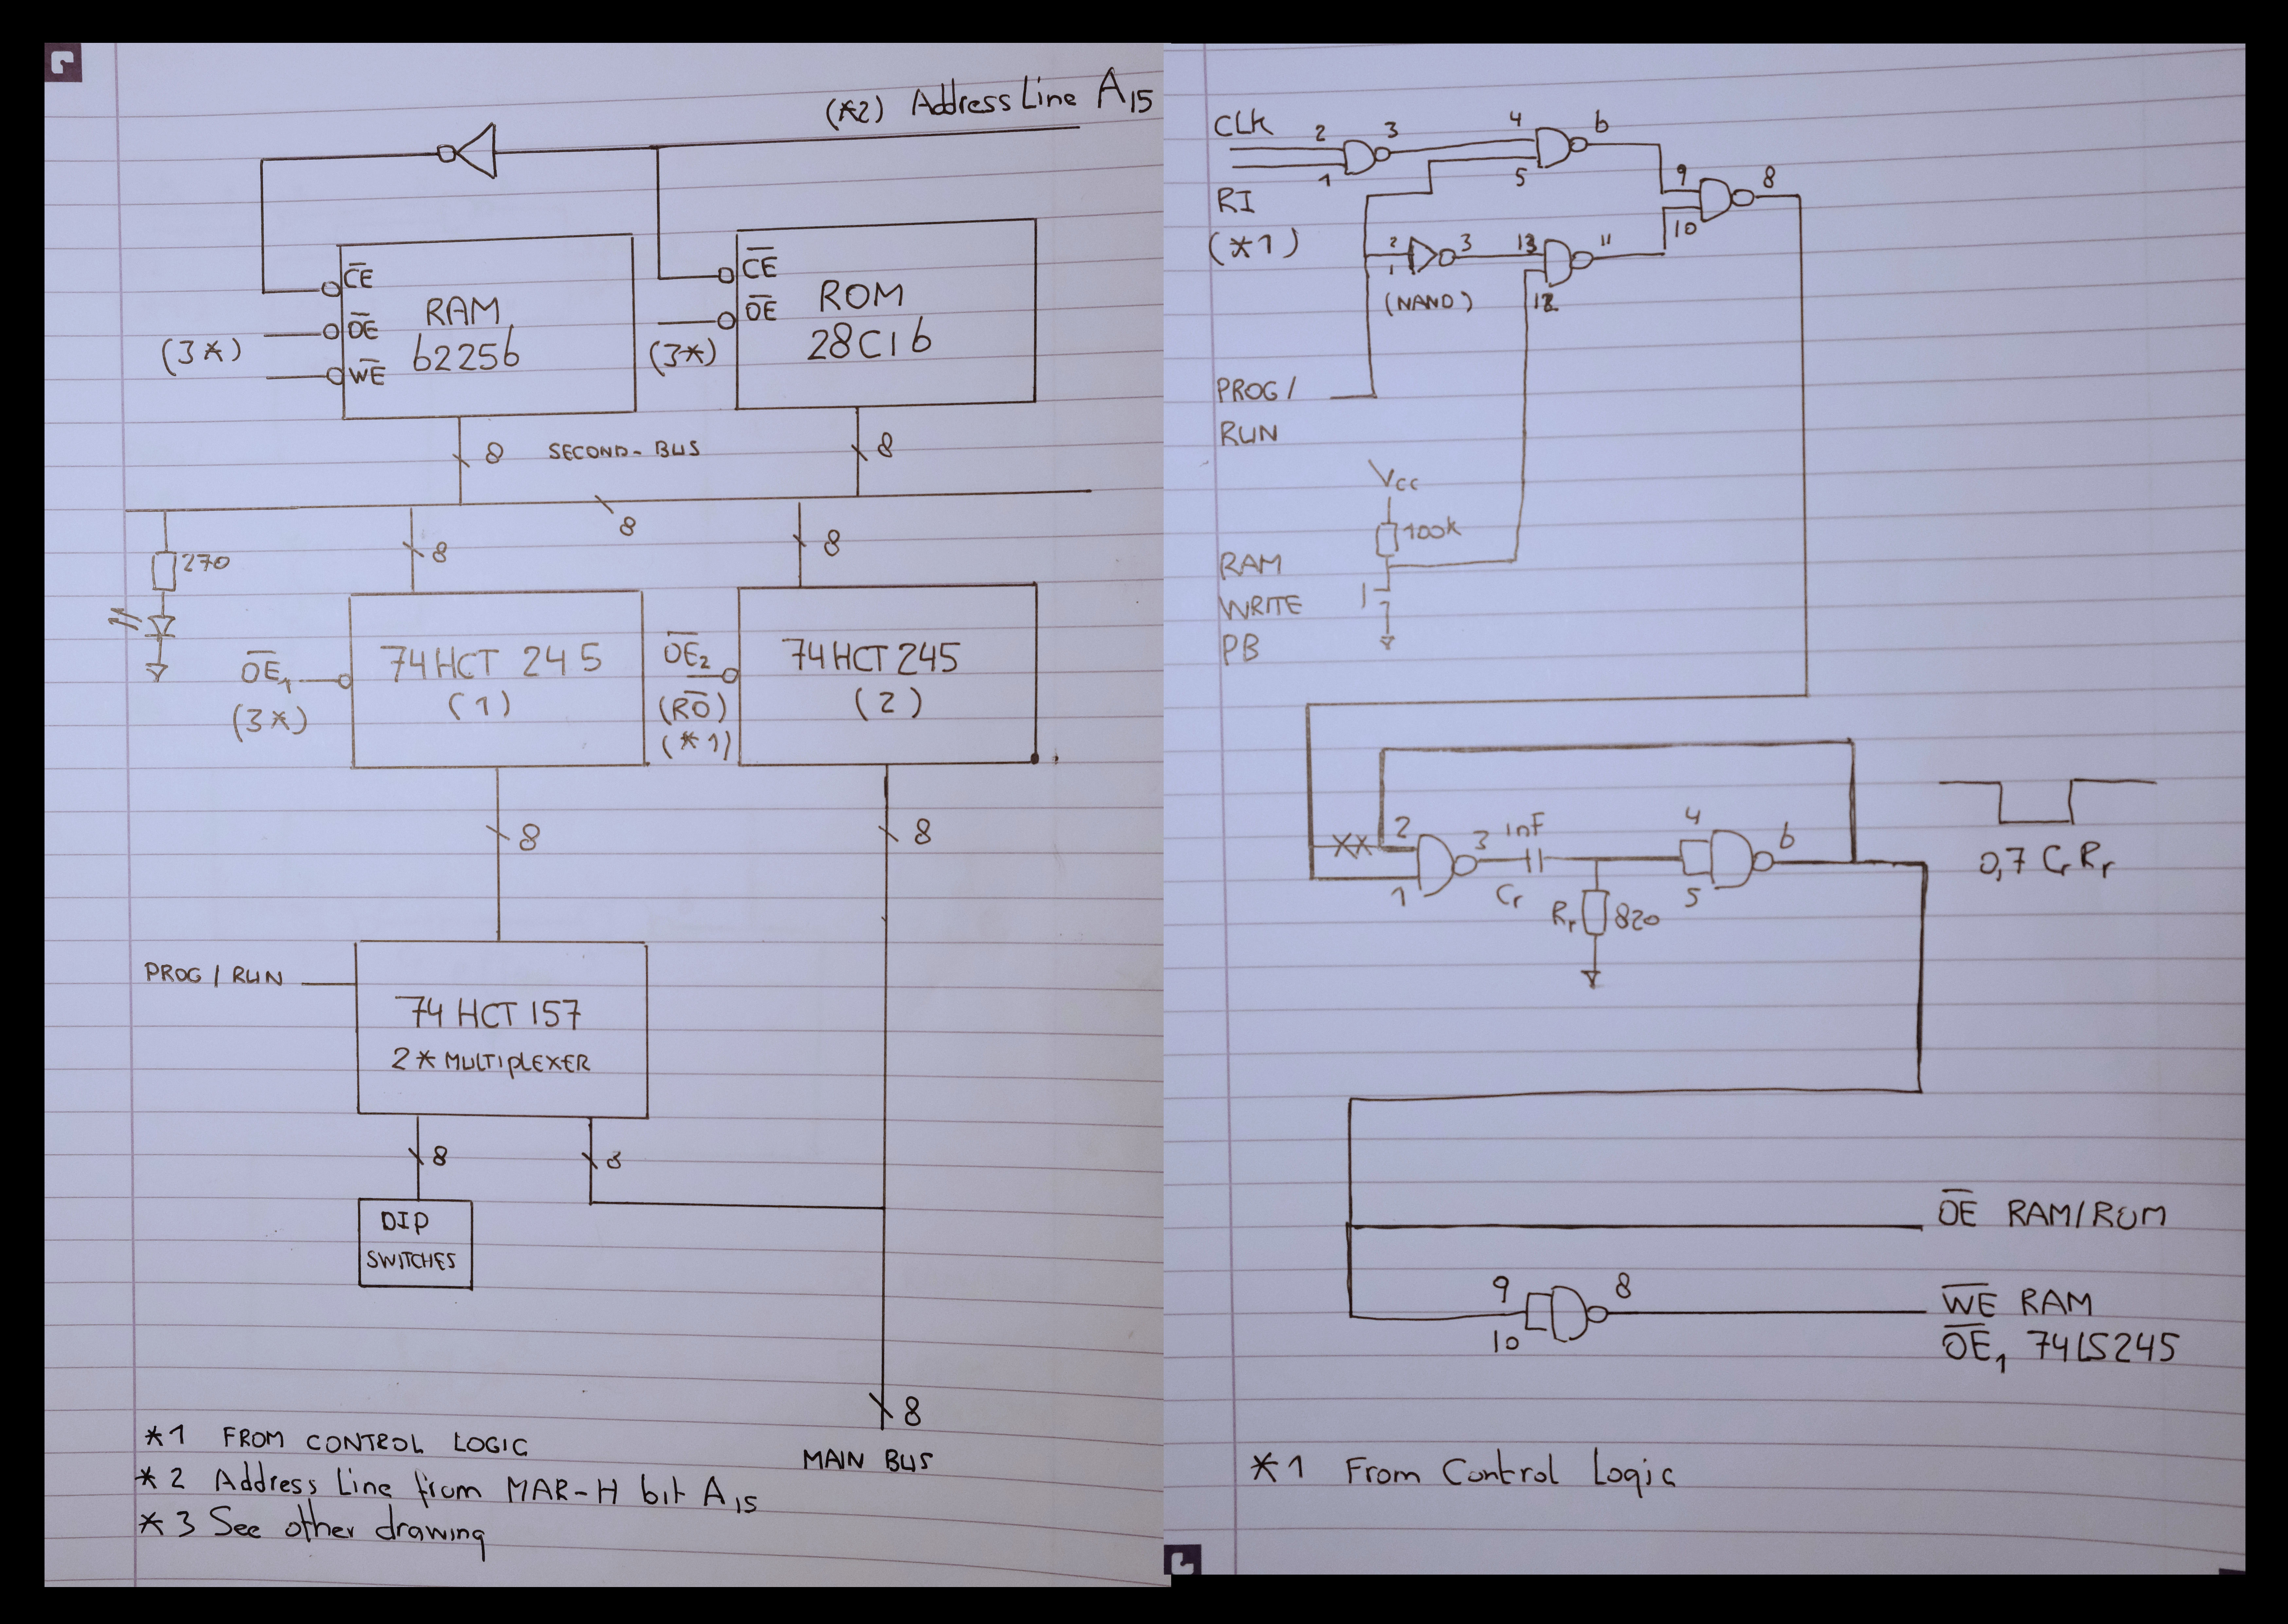 (*2) Address Line A15
CE
OE
WE
(3*)
RAM
62256
CE
OE
(3*)
ROM
28C16
8
SECOND-BUS
8
8
270
8
8
OE1
(3*)
74HCT 245
(1)
OE2
(RO)
(*1)
74HCT 245
(2)
8
8
PROG / RUN
74 HCT 157
2* MULTIPLEXER
8
8
DIP
SWITCHES
8
MAIN BUS
*1 FROM CONTROL LOGIC
*2 Address Line from MAR-H bit A15
*3 See other drawing
CLK
2
3
1
4
5
6
9
10
8
RI
(*1)
2
1
3
13
12
11
(NAND)
PROG /
RUN
Vcc
100k
RAM
WRITE
PB
XX
2
1
3
1nF
Cr
Rr
820
4
5
6
0,7 Cr Rr
OE RAM/ROM
9
10
8
WE RAM
OE1 74LS245
*1 From Control Logic